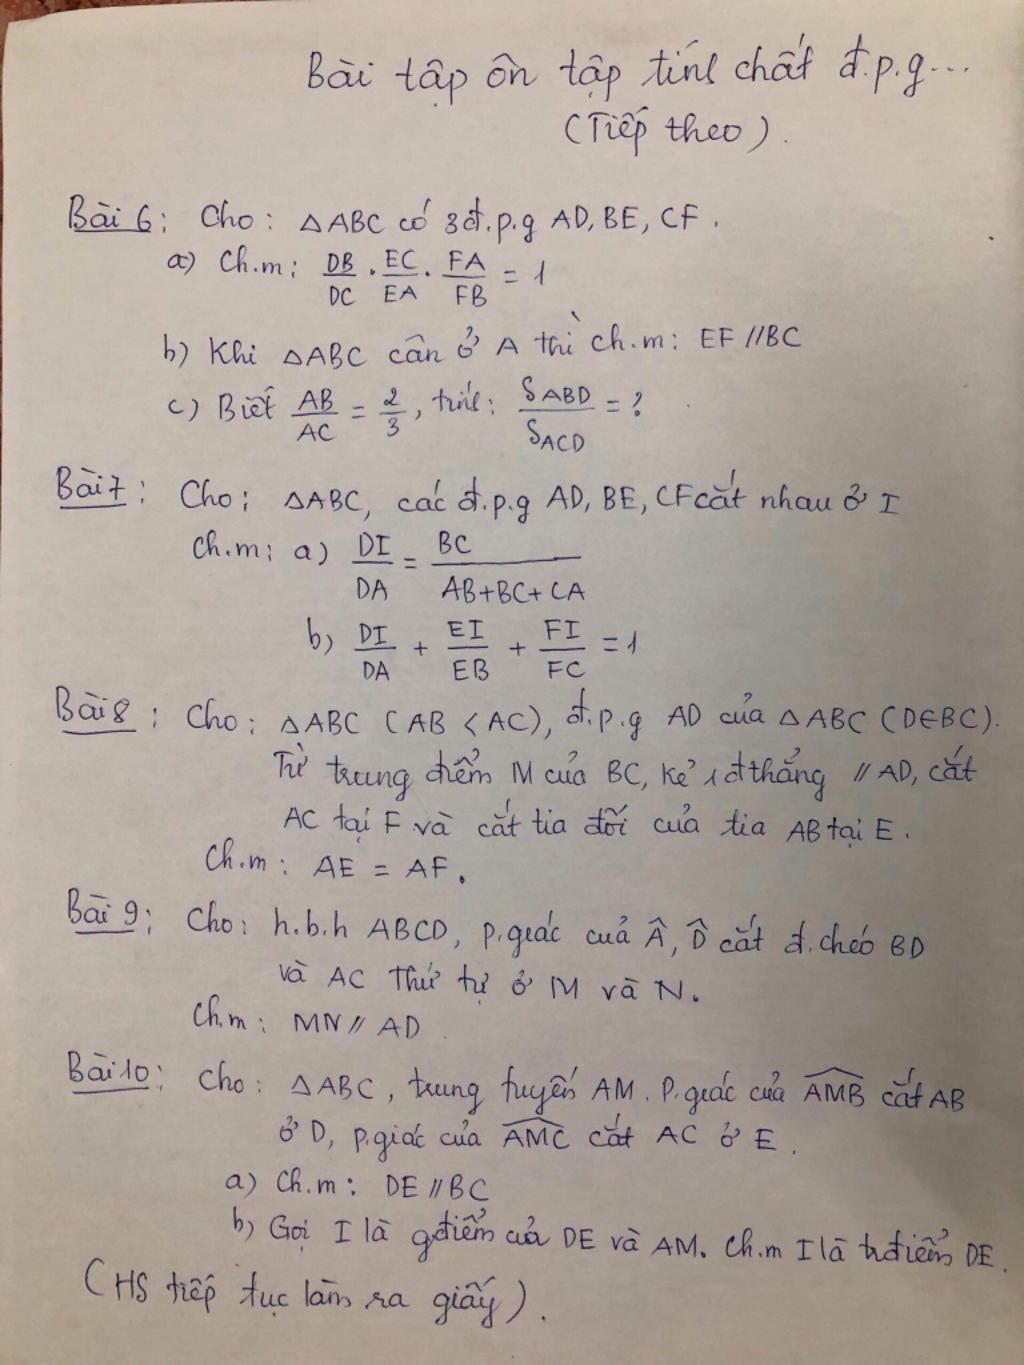 Bài tập ôn tập tính chất đ.p.g...
(Tiếp theo).
Bài 6: Cho: △ABC có 3 đ.p.g AD, BE, CF.
a) Ch.m: DB/DC . EC/EA . FA/FB = 1
b) Khi △ABC cân ở A thì ch.m: EF // BC
c) Biết AB/AC = 2/3, tính: S_ABD/S_ACD = ?
Bài 7: Cho: △ABC, các đ.p.g AD, BE, CF cắt nhau ở I
Ch.m: a) DI/DA = BC/(AB+BC+CA)
b) DI/DA + EI/EB + FI/FC = 1
Bài 8: Cho: △ABC (AB < AC), đ.p.g AD của △ABC (D∈BC).
Từ trung điểm M của BC, kẻ 1 đthẳng // AD, cắt
AC tại F và cắt tia đối của tia AB tại E.
Ch.m: AE = AF.
Bài 9: Cho: h.b.h ABCD, p.giác của Â, D̂ cắt đ.chéo BD
và AC thứ tự ở M và N.
Ch.m: MN // AD
Bài 10: Cho: △ABC, trung tuyến AM. P.giác của AMB̂ cắt AB
ở D, p.giác của AMĈ cắt AC ở E.
a) Ch.m: DE // BC
b) Gọi I là gđiểm của DE và AM. Ch.m I là trđiểm DE.
(HS tiếp tục làm ra giấy).